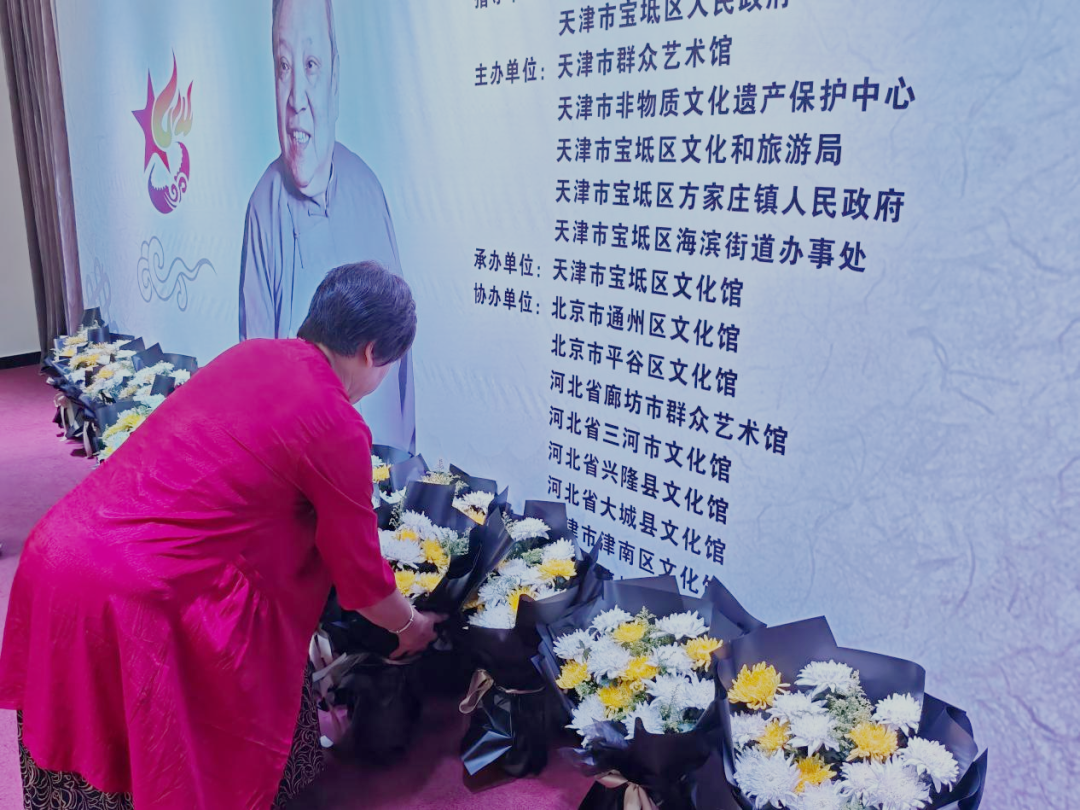 天津市宝坻区人民政府
主办单位：天津市群众艺术馆
天津市非物质文化遗产保护中心
天津市宝坻区文化和旅游局
天津市宝坻区方家庄镇人民政府
天津市宝坻区海滨街道办事处
承办单位：天津市宝坻区文化馆
协办单位：北京市通州区文化馆
北京市平谷区文化馆
河北省廊坊市群众艺术馆
河北省三河市文化馆
河北省兴隆县文化馆
河北省大城县文化馆
津市津南区文化馆